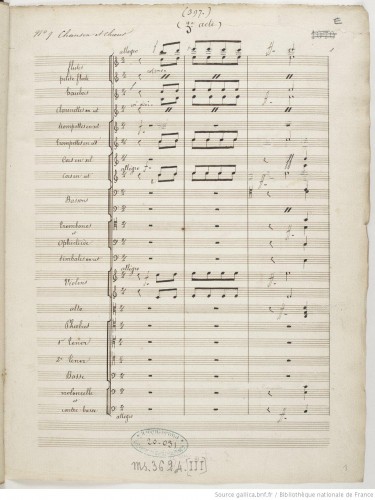 (397.)
(3e acte)
E
No 1 Chanson et chœur
allegro
flûtes
petite flûte
hautbois
clarinettes en ut
trompettes en ut
trompettes en ut
Cors en ut
allegro
Cors en ut
Bassons
trombones
et
Ophicléide
timbales en ut
allegro
Violons
alto
Phœbus
1er tenor
2e tenor
Basse
violoncelle
et
contre-basse
allegro
20-031
ms. 362 A. [III]
1
Source gallica.bnf.fr / Bibliothèque nationale de France